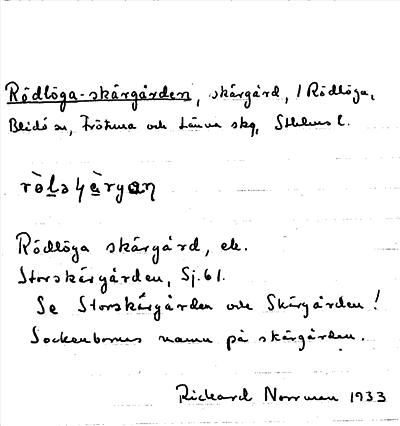 Rödlöga-skärgården, skärgård, i Rödlöga,
Blidö sn, Frötuna och Länna skg, Sthlms l.
Rödlöga skärgård, ek.
Storskärgården, Sj. 61.
Se Storskärgården och Skärgården!
Sockenbornas namn på skärgården.
Rickard Norrman 1933